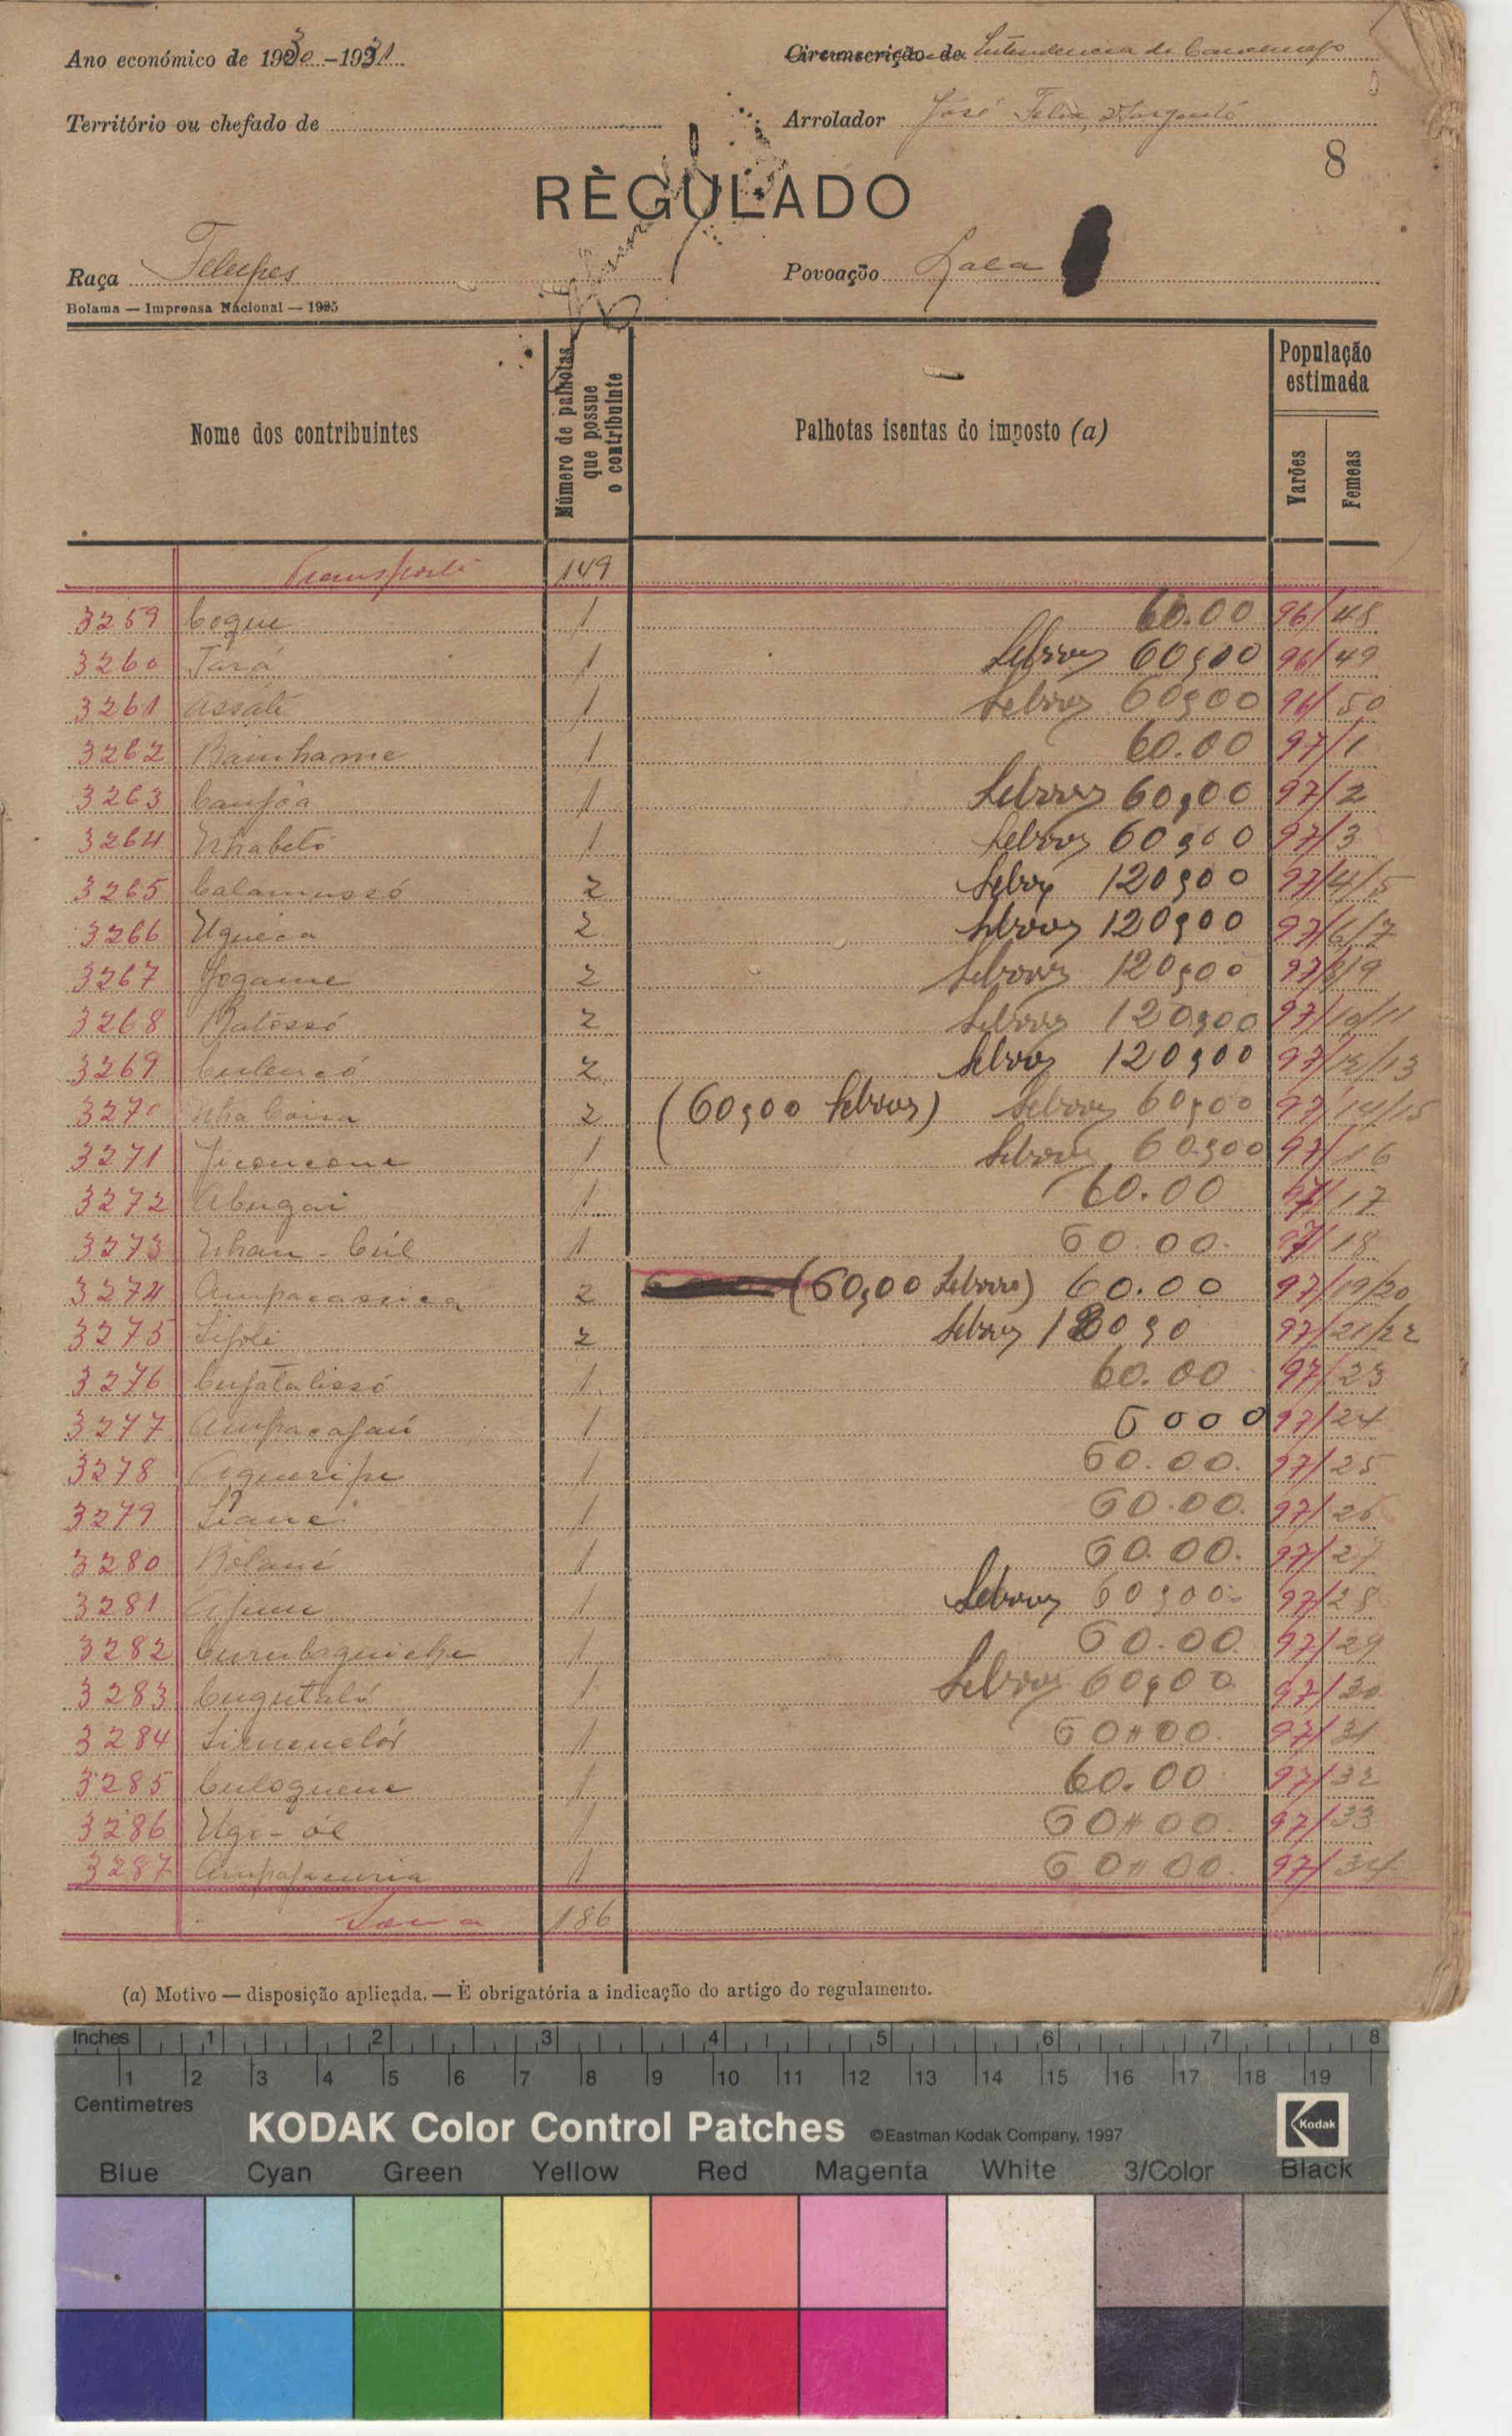 Ano económico de 1930-1931
Circunscrição de Intendencia de Canchungo
Território ou chefado de
Arrolador José Felix, 2º Sargento
8
RÈGULADO
Raça Felupes
Povoação Lala
Bolama — Imprensa Nacional — 1925
Nome dos contribuintes
Número de palhotas que possue o contribuinte
Palhotas isentas do imposto (a)
População estimada
Varões
Femeas
Transporte 149
3259 Coque 1 60.00 96/48
3260 Tará 1 60$00 96/49
3261 Assáli 1 60$00 96/50
3262 Bainhame 1 60.00 97/1
3263 Canjôa 1 60$00 97/2
3264 Nhabetó 1 60$00 97/3
3265 Calamussó 2 120$00 97/4/5
3266 Uguéca 2 120$00 97/6/7
3267 Jogame 2 120$00 97/8/9
3268 Batossó 2 120$00 97/10/11
3269 2 120$00 97/12/13
3270 Nha Coisa 2 (60$00 ) 60$00 97/14/15
3271 1 60$00 97/16
3272 Abugai 1 60.00 97/17
3273 Nhan-Cúl 1 60.00 97/18
3274 Ampacassica 2 (60,00 ) 60.00 97/19/20
3275 Lifoli 2 97/21/22
3276 1 60.00 97/23
3277 1 6000 97/24
3278 Agueripe 1 60.00. 97/25
3279 Liané 1 60.00. 97/26
3280 Bolané 1 60.00. 97/27
3281 1 60$00 97/28
3282 1 60.00 97/29
3283 Cugutalú 1 60$00 97/30
3284 1 60#00. 97/31
3285 Culoguene 1 60.00 97/32
3286 1 60#00. 97/33
3287 1 60#00. 97/34
Soma 186
(a) Motivo — disposição aplicada. — È obrigatória a indicação do artigo do regulamento.
Inches 1 2 3 4 5 6 7 8
1 2 3 4 5 6 7 8 9 10 11 12 13 14 15 16 17 18 19
Centimetres
KODAK Color Control Patches ©Eastman Kodak Company, 1997 Kodak
Blue Cyan Green Yellow Red Magenta White 3/Color Black